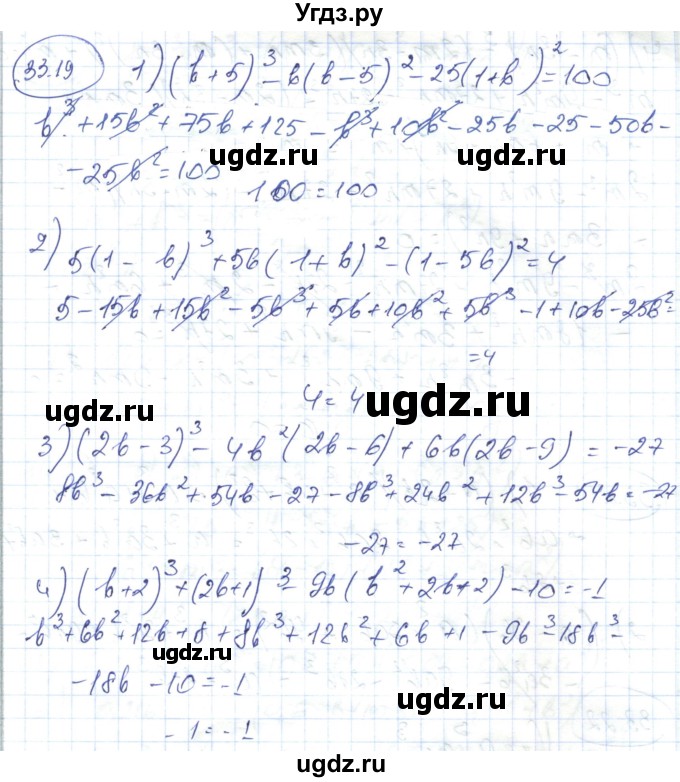 Угдз.ру
33.19 1) (b+5)³ - b(b-5)² - 25(1+b)² = 100
b³ + 15b² + 75b + 125 - b³ + 10b² - 25b - 25 - 50b -
- 25b² = 100
ugdz.ru ugdz.ru
100 = 100
2) 5(1 - b)³ + 5b(1+b)² - (1-5b)² = 4
5 - 15b + 15b² - 5b³ + 5b + 10b² + 5b³ - 1 + 10b - 25b² =
= 4
4 = 4
ugdz.ru ugdz.ru
3) (2b-3)³ - 4b²(2b-6) + 6b(2b-9) = -27
8b³ - 36b² + 54b - 27 - 8b³ + 24b² + 12b³ - 54b = -27
-27 = -27
4) (b+2)³ + (2b+1)³ - 9b(b²+2b+2) - 10 = -1
b³ + 6b² + 12b + 8 + 8b³ + 12b² + 6b + 1 - 9b³ - 18b³ -
ugdz.ru
- 18b - 10 = -1
ugdz.ru
-1 = -1
ugdz.ru